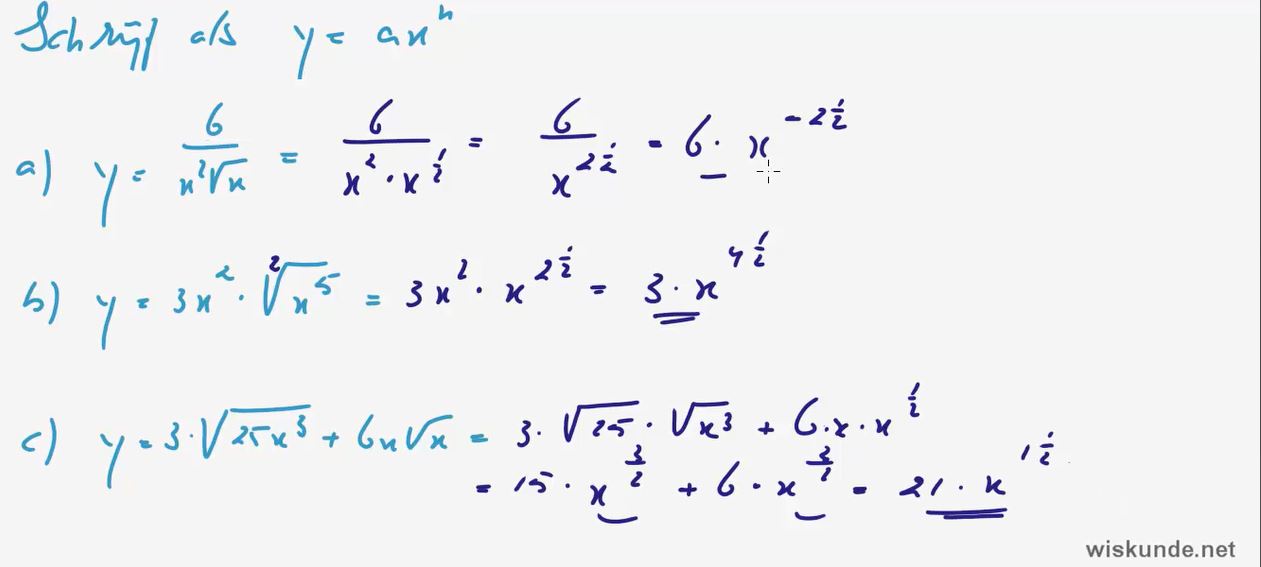 Schrijf als y = axⁿ
a) y = 6/(x²√x) = 6/(x² · x^½) = 6/x^(2½) = 6 · x^(-2½)
b) y = 3x² · ²√(x⁵) = 3x² · x^(2½) = 3 · x^(4½)
c) y = 3 · √(25x³) + 6x√x = 3 · √25 · √(x³) + 6 · x · x^½
= 15 · x^(3/2) + 6 · x^(3/2) = 21 · x^(1½)
wiskunde.net